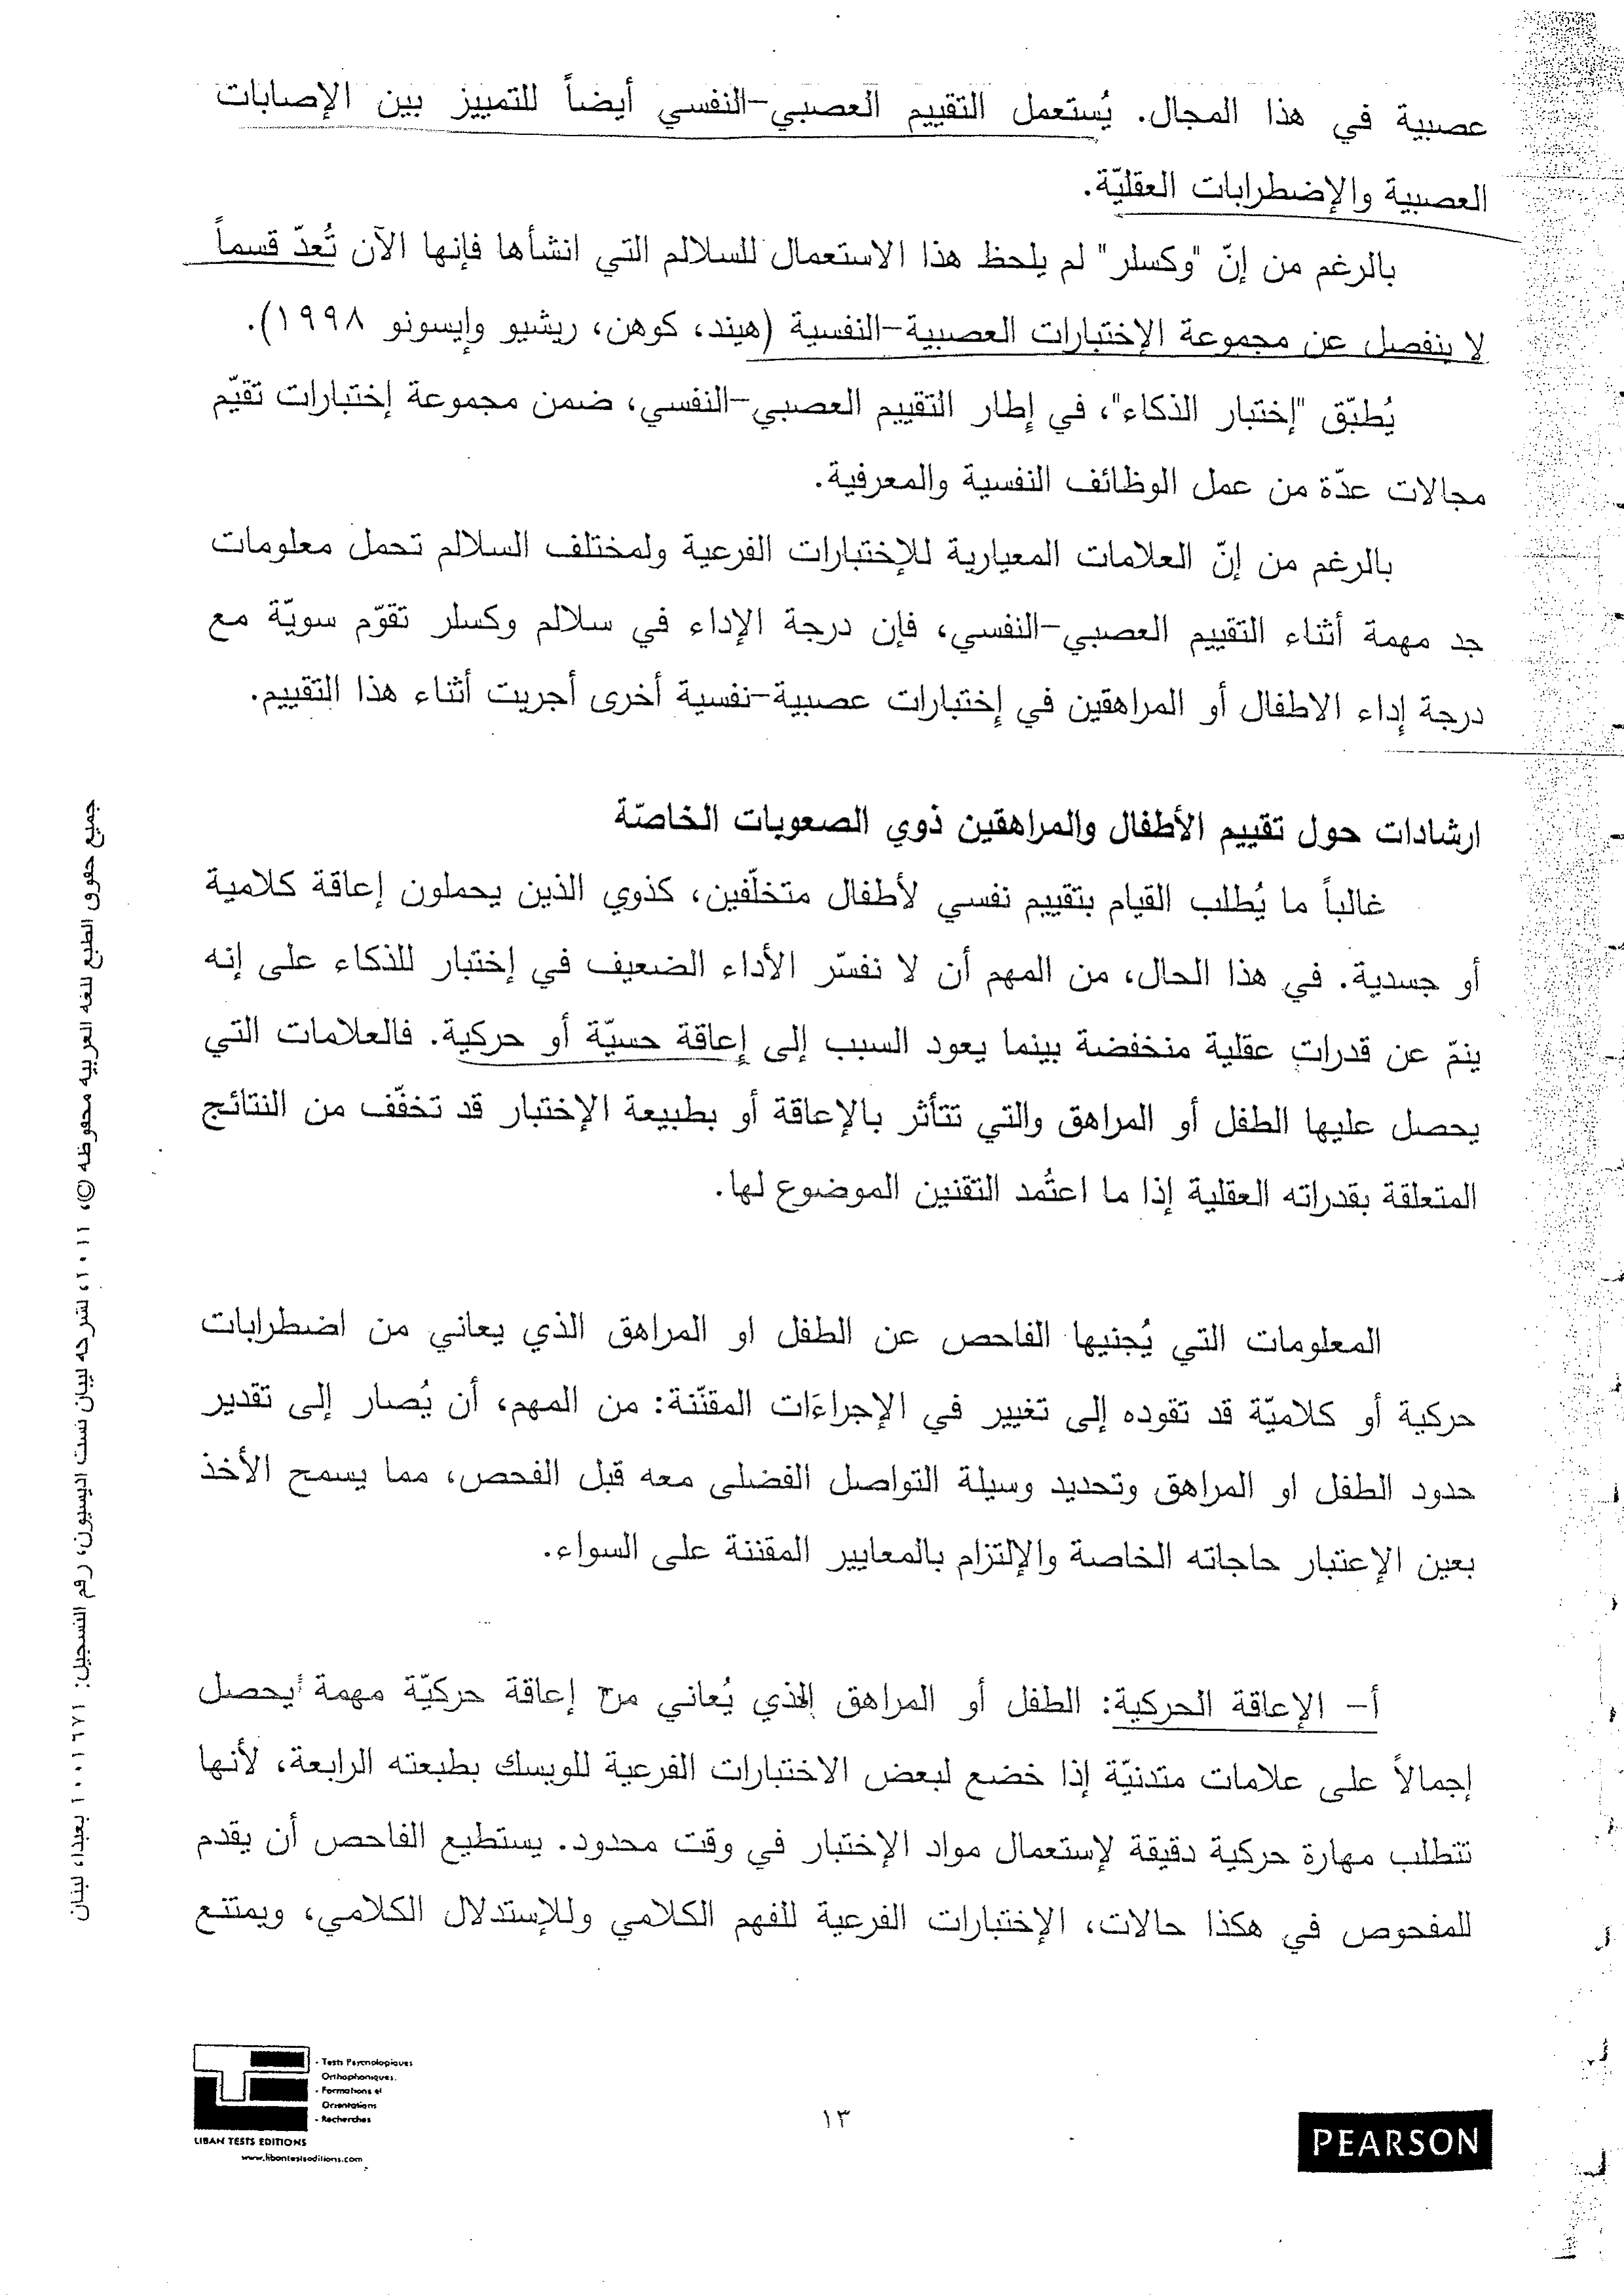 عصبية في هذا المجال. يُستعمل التقييم العصبي-النفسي أيضاً للتمييز بين الإصابات
العصبية والإضطرابات العقليّة.
بالرغم من إنّ "وكسلر" لم يلحظ هذا الاستعمال للسلالم التي انشأها فإنها الآن تُعدّ قسماً
لا ينفصل عن مجموعة الإختبارات العصبية-النفسية (هيند، كوهن، ريشيو وإيسونو ١٩٩٨).
يُطبّق "إختبار الذكاء"، في إطار التقييم العصبي-النفسي، ضمن مجموعة إختبارات تقيّم
مجالات عدّة من عمل الوظائف النفسية والمعرفية.
بالرغم من إنّ العلامات المعيارية للإختبارات الفرعية ولمختلف السلالم تحمل معلومات
جد مهمة أثناء التقييم العصبي-النفسي، فإن درجة الإداء في سلالم وكسلر تقوّم سويّة مع
درجة إداء الاطفال أو المراهقين في إختبارات عصبية-نفسية أخرى أجريت أثناء هذا التقييم.
ارشادات حول تقييم الأطفال والمراهقين ذوي الصعوبات الخاصّة
غالباً ما يُطلب القيام بتقييم نفسي لأطفال متخلّفين، كذوي الذين يحملون إعاقة كلامية
أو جسدية. في هذا الحال، من المهم أن لا نفسّر الأداء الضعيف في إختبار للذكاء على إنه
ينمّ عن قدرات عقلية منخفضة بينما يعود السبب إلى إعاقة حسيّة أو حركية. فالعلامات التي
يحصل عليها الطفل أو المراهق والتي تتأثر بالإعاقة أو بطبيعة الإختبار قد تخفّف من النتائج
المتعلقة بقدراته العقلية إذا ما اعتُمد التقنين الموضوع لها.
المعلومات التي يُجنيها الفاحص عن الطفل او المراهق الذي يعاني من اضطرابات
حركية أو كلاميّة قد تقوده إلى تغيير في الإجراءَات المقنّنة: من المهم، أن يُصار إلى تقدير
حدود الطفل او المراهق وتحديد وسيلة التواصل الفضلى معه قبل الفحص، مما يسمح الأخذ
بعين الإعتبار حاجاته الخاصة والإلتزام بالمعايير المقننة على السواء.
أ- الإعاقة الحركية: الطفل أو المراهق الذي يُعاني من إعاقة حركيّة مهمة يحصل
إجمالاً على علامات متدنيّة إذا خضع لبعض الاختبارات الفرعية للويسك بطبعته الرابعة، لأنها
تتطلب مهارة حركية دقيقة لإستعمال مواد الإختبار في وقت محدود. يستطيع الفاحص أن يقدم
للمفحوص في هكذا حالات، الإختبارات الفرعية للفهم الكلامي وللإستدلال الكلامي، ويمتنع
جميع حقوق الطبع للغة العربية محفوظة ©، ٢٠١١، شركة ليبان تست اديسيون، رقم التسجيل: ١٠٠١٦٧١ بعبدا، لبنان
- Tests Psychologiques
Orthophoniques.
- Formations et
Orientations
- Recherches
LIBAN TESTS EDITIONS
www.libantestseditions.com
١٣
PEARSON